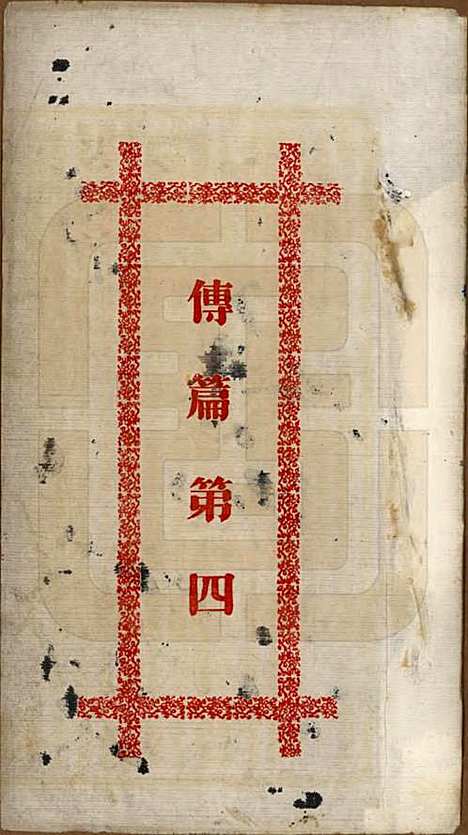 傳篇第四